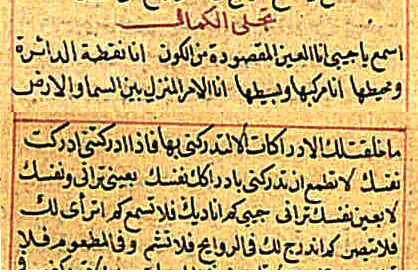 تجلى الكمال
اسمع يا حبيبى انا العين المقصودة من الكون انا نقطة الدائرة
ومحيطها انا مركبها وبسيطها انا الامر المنزل بين السما والارض
ما خلقت لك الادراكات الا لتدركنى بها فاذا ادركتنى ادركت
نفسك لا تطمع ان تدركنى بادراكك نفسك بعينى ترانى ونفسك
لا بعين نفسك ترانى حبيبى كم اناديك فلا تسمع كم اتراى لك
فلا تبصر كم اندرج لك فى الروايح فلا تشم وفى المطعوم فلا